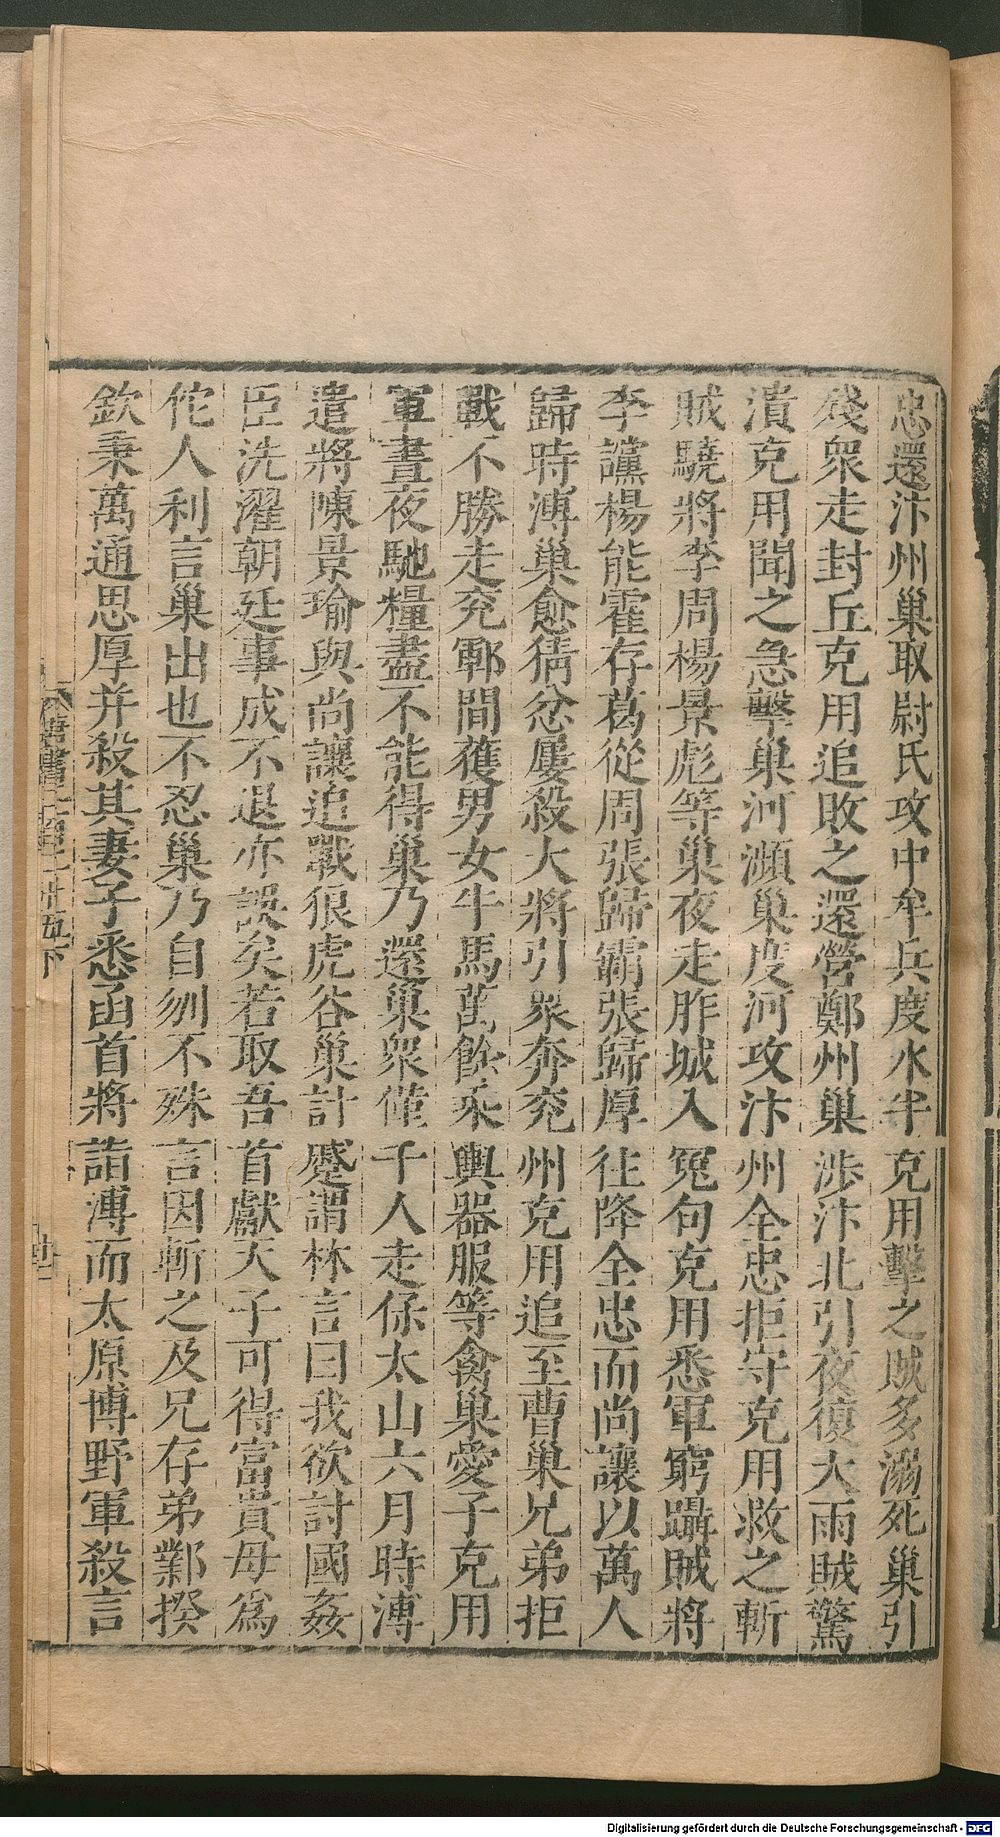 忠還汴州巢取尉氏攻中牟兵度水半克用擊之賊多溺死巢引
殘衆走封丘克用追敗之還營鄭州巢涉汴北引夜復大雨賊驚
潰克用聞之急擊巢河瀕巢度河攻汴州全忠拒守克用救之斬
賊驍將李周楊景彪等巢夜走胙城入冤句克用悉軍窮躡賊將
李讜楊能霍存葛從周張歸霸張歸厚往降全忠而尚讓以萬人
歸時溥巢愈猜忿屢殺大將引衆奔兗州克用追至曹巢兄弟拒
戰不勝走兗鄆間獲男女牛馬萬餘乘輿器服等禽巢愛子克用
軍晝夜馳糧盡不能得巢乃還巢衆僅千人走保太山六月時溥
遣將陳景瑜與尚讓追戰狼虎谷巢計蹙謂林言曰我欲討國姦
臣洗濯朝廷事成不退亦誤矣若取吾首獻天子可得富貴毋爲
佗人利言巢出也不忍巢乃自刎不殊言因斬之及兄存弟鄴揆
欽秉萬通思厚并殺其妻子悉函首將詣溥而太原博野軍殺言
唐書二百二十五下